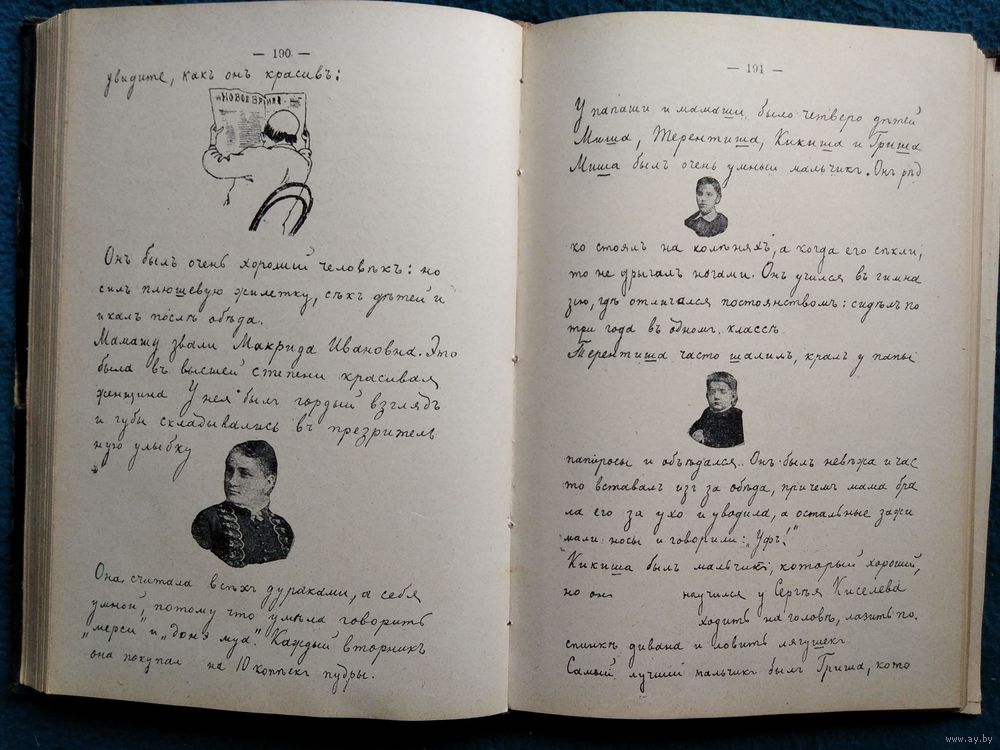 — 190 —
увидите, какъ онъ красивъ:
НОВОЕ ВРЕМЯ
Онъ былъ очень хорошій человѣкъ: но
силъ плюшевую жилетку, сѣкъ дѣтей и
икалъ послѣ обѣда.
Мамашу звали Макрида Ивановна. Это
была въ высшей степени красивая
женщина У нея былъ гордый взглядъ
и губы складывались въ презритель
ную улыбку
Она считала всѣхъ дураками, а себя
умной, потому что умѣла говорить
„мерси" и „доне муа". Каждый вторникъ
она покупал на 10 копѣекъ пудры.
— 191 —
У папаши и мамаши было четверо дѣтей
Миша, Терентиша, Кикиша и Гриша
Миша былъ очень умный мальчикъ. Онъ рѣд
ко стоялъ на колѣняхъ, а когда его сѣкли,
то не дрыгалъ ногами. Онъ учился въ гимна
зію, гдѣ отличался постоянствомъ: сидѣлъ по
три года въ одномъ классѣ
Терентиша часто шалилъ, кралъ у папы
папиросы и объѣдался. Онъ былъ невѣжа и час
то вставалъ изъ за обѣда, причемъ мама бра
ла его за ухо и уводила, а остальные зажи
мали носы и говорили: „Уфъ!"
Кикиша былъ мальчикъ, который хорошій,
но онъ научился у Сергѣя Киселева
ходить на головѣ, лазить по
спинкѣ дивана и ловить лягушекъ
Самый лучшій мальчикъ былъ Гриша, кото
www.ay.by